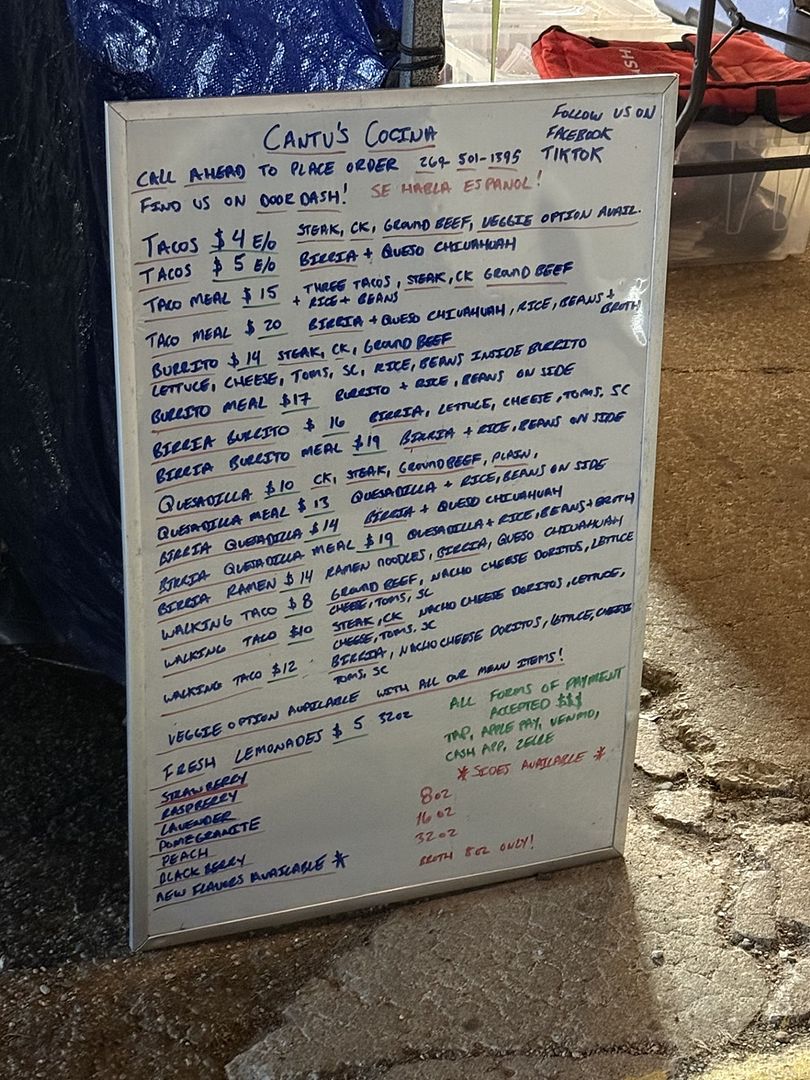 CANTU'S COCINA
FOLLOW US ON
FACEBOOK
TIKTOK
CALL AHEAD TO PLACE ORDER 269-501-1395
FIND US ON DOOR DASH! SE HABLA ESPANOL!
TACOS $4 E/O STEAK, CK, GROUND BEEF, VEGGIE OPTION AVAIL.
TACOS $5 E/O BIRRIA + QUESO CHIUAHUAH
TACO MEAL $15 THREE TACOS, STEAK, CK GROUND BEEF
+ RICE + BEANS
TACO MEAL $20 BIRRIA + QUESO CHIUAHUAH, RICE, BEANS + BROTH
BURRITO $14 STEAK, CK, GROUND BEEF
LETTUCE, CHEESE, TOMS, SC, RICE, BEANS INSIDE BURRITO
BURRITO MEAL $17 BURRITO + RICE, BEANS ON SIDE
BIRRIA BURRITO $16 BIRRIA, LETTUCE, CHEESE, TOMS, SC
BIRRIA BURRITO MEAL $19 BIRRIA + RICE, BEANS ON SIDE
QUESADILLA $10 CK, STEAK, GROUND BEEF, PLAIN,
QUESADILLA MEAL $13 QUESADILLA + RICE, BEANS ON SIDE
BIRRIA QUESADILLA $14 BIRRIA + QUESO CHIUAHUAH
BIRRIA QUESADILLA MEAL $19 QUESADILLA + RICE, BEANS + BROTH
BIRRIA RAMEN $14 RAMEN NOODLES, BIRRIA, QUESO CHIUAHUAH
WALKING TACO $8 GROUND BEEF, NACHO CHEESE DORITOS, LETTUCE
CHEESE, TOMS, SC
WALKING TACO $10 STEAK, CK NACHO CHEESE DORITOS, LETTUCE,
CHEESE, TOMS, SC
WALKING TACO $12 BIRRIA, NACHO CHEESE DORITOS, LETTUCE, CHEESE
TOMS, SC
VEGGIE OPTION AVAILABLE WITH ALL OUR MENU ITEMS!
FRESH LEMONADES $5 32oz
STRAWBERRY
RASPBERRY
LAVENDER
POMEGRANITE
PEACH
BLACKBERRY
NEW FLAVORS AVAILABLE *
ALL FORMS OF PAYMENT
ACCEPTED $$$
TAP, APPLE PAY, VENMO,
CASH APP, ZELLE
* SIDES AVAILABLE *
8oz
16oz
32oz
BROTH 8oz ONLY!